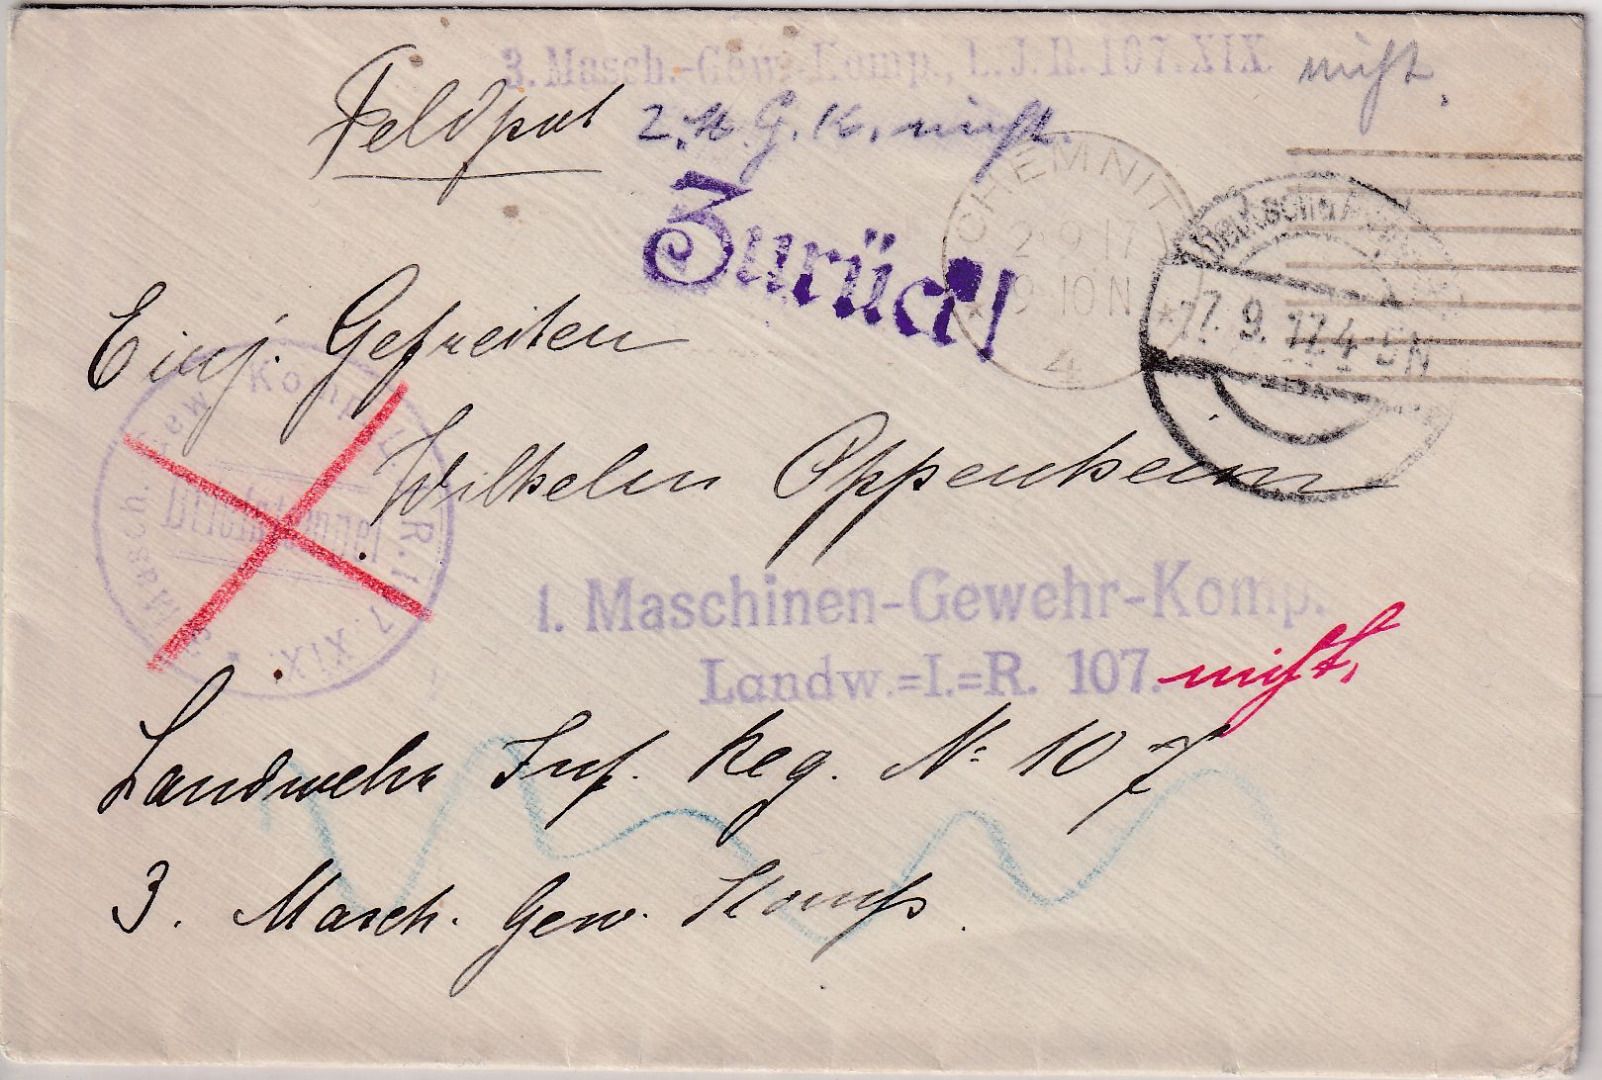 3. Masch.-Gew. Komp. L.J.R.107.XIX.
nicht.
Feldpost
2. M. G. K. nicht.
Zurück!
CHEMNITZ
2 9 17
9-10 N
* 4
7. 9. 17. 4-5N
Einj. Gefreiten
Wilhelm Oppenheim
Masch. Gew. Komp. L. R. 107. XIX.
Briefstempel
1. Maschinen-Gewehr-Komp.
Landw.=I.=R. 107. nicht.
Landwehr Inf. Reg. No 107
3. Masch. Gew. Komp.